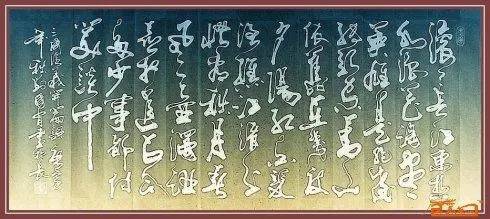 滚々長江東逝
水浪花淘尽
英雄是非成
败转头空青山
依旧在几度
夕陽红白髮
渔樵江渚上
惯看秋月春
风一壶浊酒
喜相逢古今
多少事都付
笑談中
三国演义